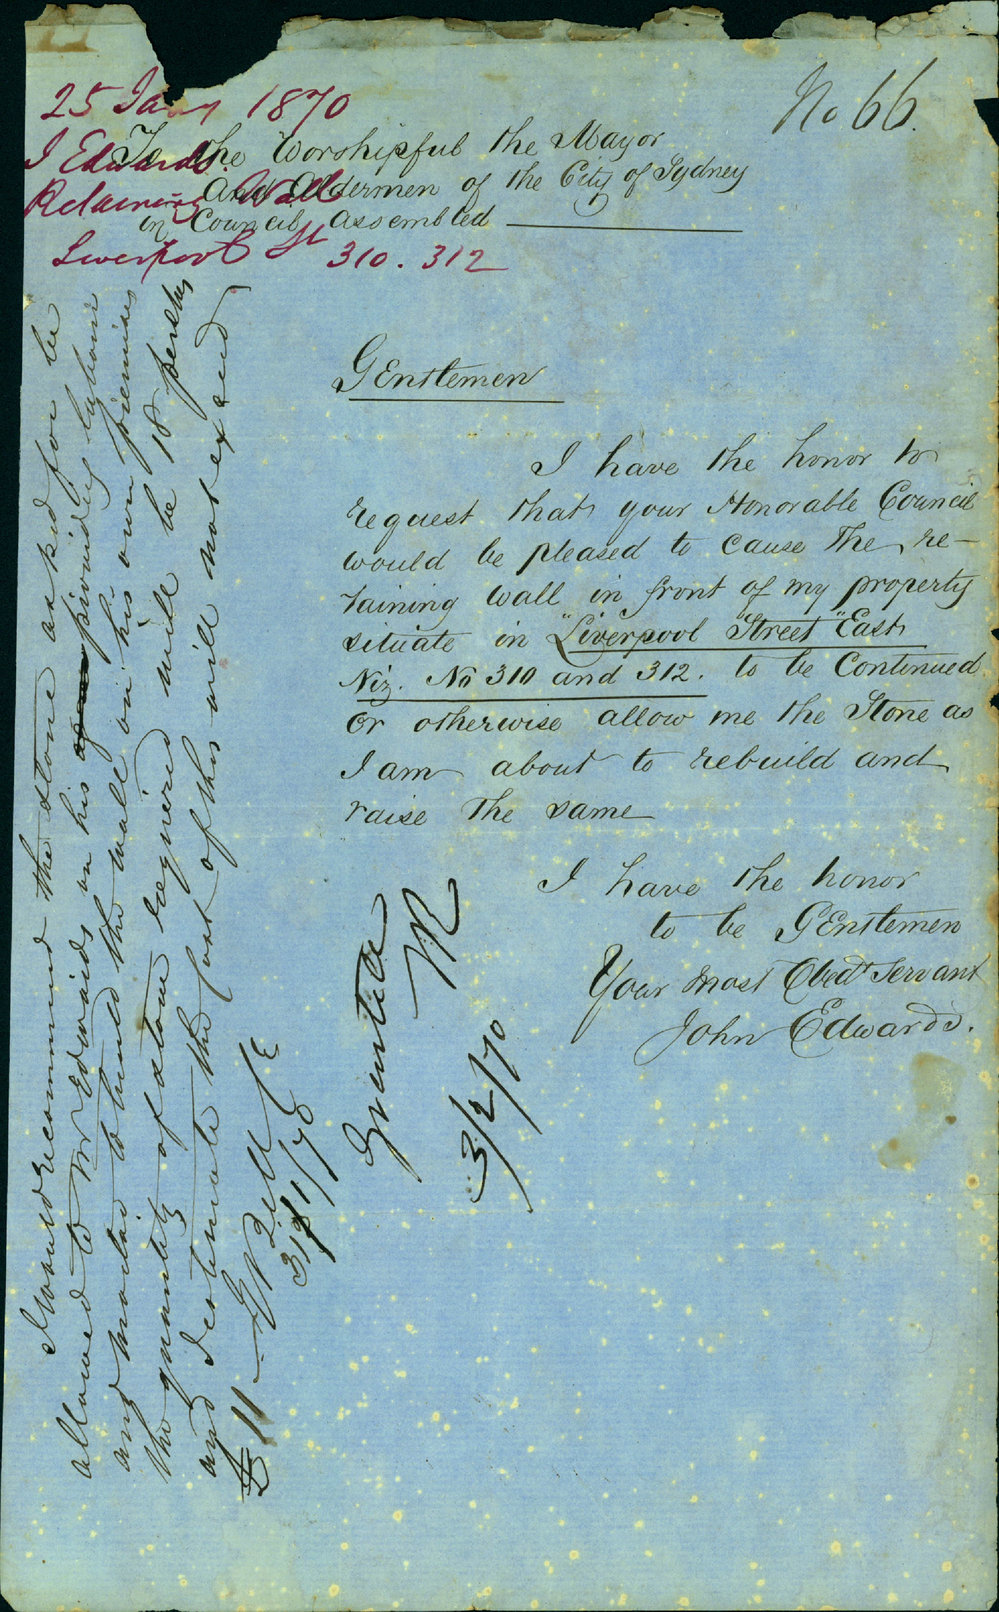 No 66.
25 Jany 1870
J Edwards.
Retaining Wall
Liverpool St 310. 312
To the Worshipful the Mayor
And Aldermen of the City of Sydney
in Council assembled
Gentlemen
I have the honor to
request that your Honorable Council
would be pleased to cause the re-
taining wall in front of my property
situate in "Liverpool "Street" East
Viz. No 310 and 312. to be Continued
or otherwise allow me the Stone as
I am about to rebuild and
raise the same
I have the honor
to be Gentlemen
Your most Obedt Servant
John Edwards.
I would recommend the stone asked for be
allowed to Mr Edwards on his providing labour
and mortar to build the wall on his own premises
the quantity of stone required will be 18 perches
and I estimate the cost of this will not exceed
£11 - E Bell CE
31/1/70
Granted
WR
3/2/70